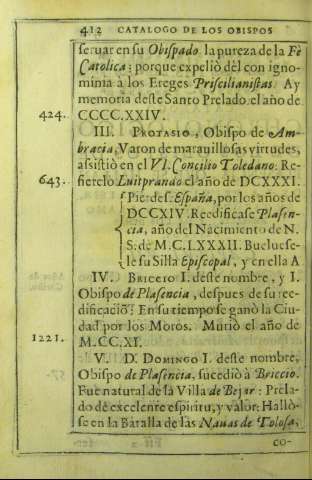 412 CATALOGO DE LOS OBISPOS
seruar en su Obispado la pureza de la Fè
Catolica: porque expeliò dèl con igno-
minia à los Ereges Priscilianistas. Ay
memoria deste Santo Prelado el año de
424. CCCC.XXIV.
III. PROTASIO, Obispo de Am-
bracia, Varon de marauillosas virtudes,
assistiò en el VI. Concilio Toledano: Re-
643. fierelo Luitprando el año de DCXXXI.
Pierdes. España, por los años de
DCCXIV. Reedificase Plasen-
cia, año del Nacimiento de N.
S. de M.C.LXXXII. Bueluese-
le su Silla Episcopal, y en ella A
IV. BRICCIO I. deste nombre, y I.
Obispo de Plasencia, despues de su ree-
dificaciõ: En su tiempo se ganò la Ciu-
dad por los Moros. Muriò el año de
1221. M.CC.XI.
V. D. DOMINGO I. deste nombre,
Obispo de Plasencia, sucediò à Briccio.
Fue natural de la Villa de Bejar: Prela-
do de excelente espiritu, y valor: Hallò-
se en la Batalla de las Nauas de Tolosa,
co-